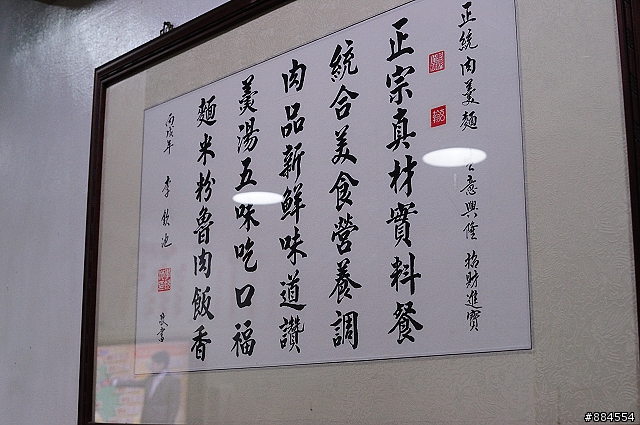 正統肉羹麵 意興隆 招財進寶
正宗真材實料餐
統合美食營養調
肉品新鮮味道讚
羹湯五味吃口福
麵米粉魯肉飯香
丙戌年 李 敬書
#884554